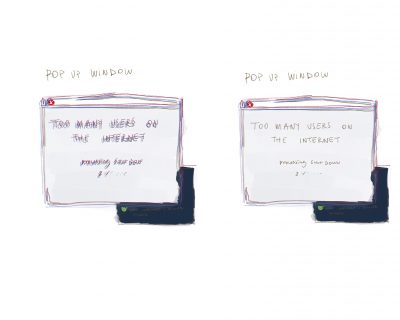 POP UP WINDOW
TOO MANY USERS ON
THE INTERNET
POP UP WINDOW
TOO MANY USERS ON
THE INTERNET
SHUT DOWN